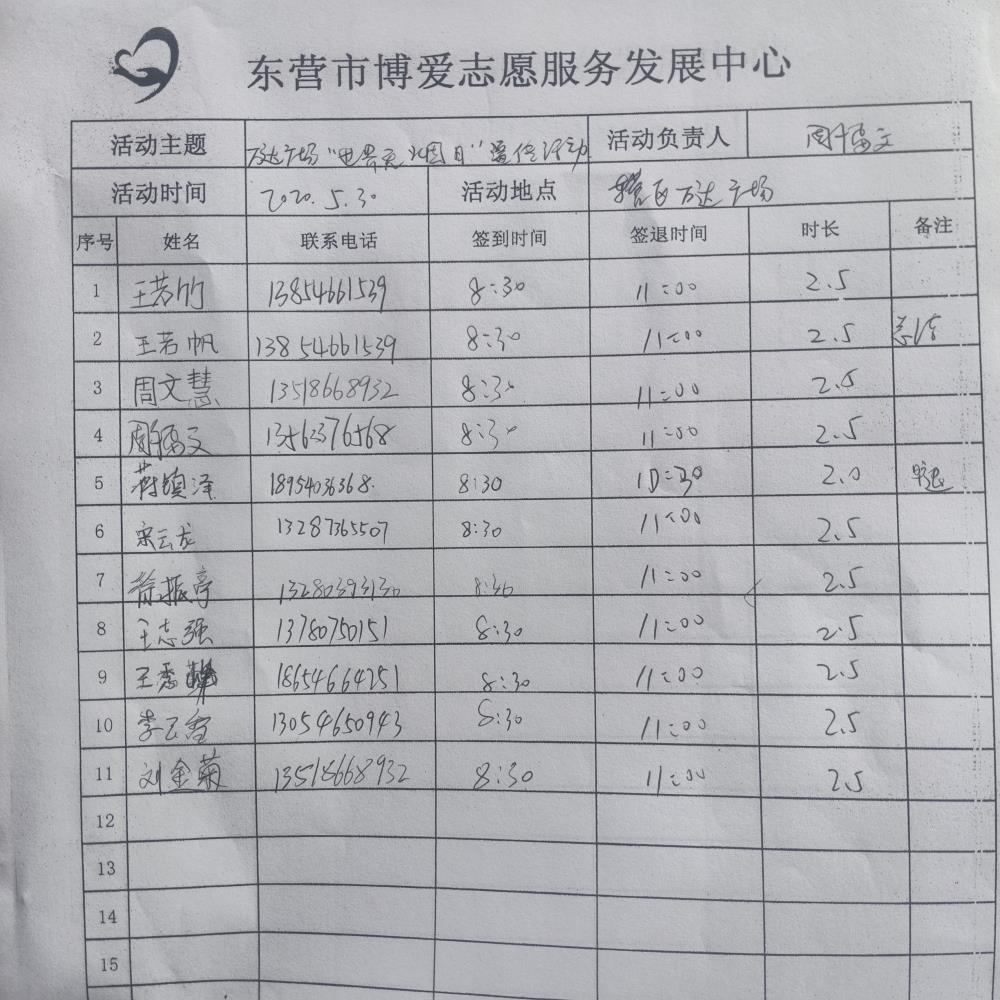 东营市博爱志愿服务发展中心
活动主题 万达广场"世界无烟日"宣传活动 活动负责人
活动时间 2020.5.30 活动地点 万达广场
序号 姓名 联系电话 签到时间 签退时间 时长 备注
1 王若竹 13854661539 8:30 11:00 2.5
2 王若帆 13854661539 8:30 11:00 2.5
3 周文慧 13518668932 8:30 11:00 2.5
4 13562376568 8:30 11:00 2.5
5 蒋镇泽 18954036368 8:30 10:30 2.0 早退
6 宋云龙 13287365507 8:30 11:00 2.5
7 徐振亭 13280393130 8:30 11:00 2.5
8 王志强 13780750151 8:30 11:00 2.5
9 王秀 18654664251 8:30 11:00 2.5
10 13054650943 8:30 11:00 2.5
11 刘金菊 13518668932 8:30 11:00 2.5
12
13
14
15